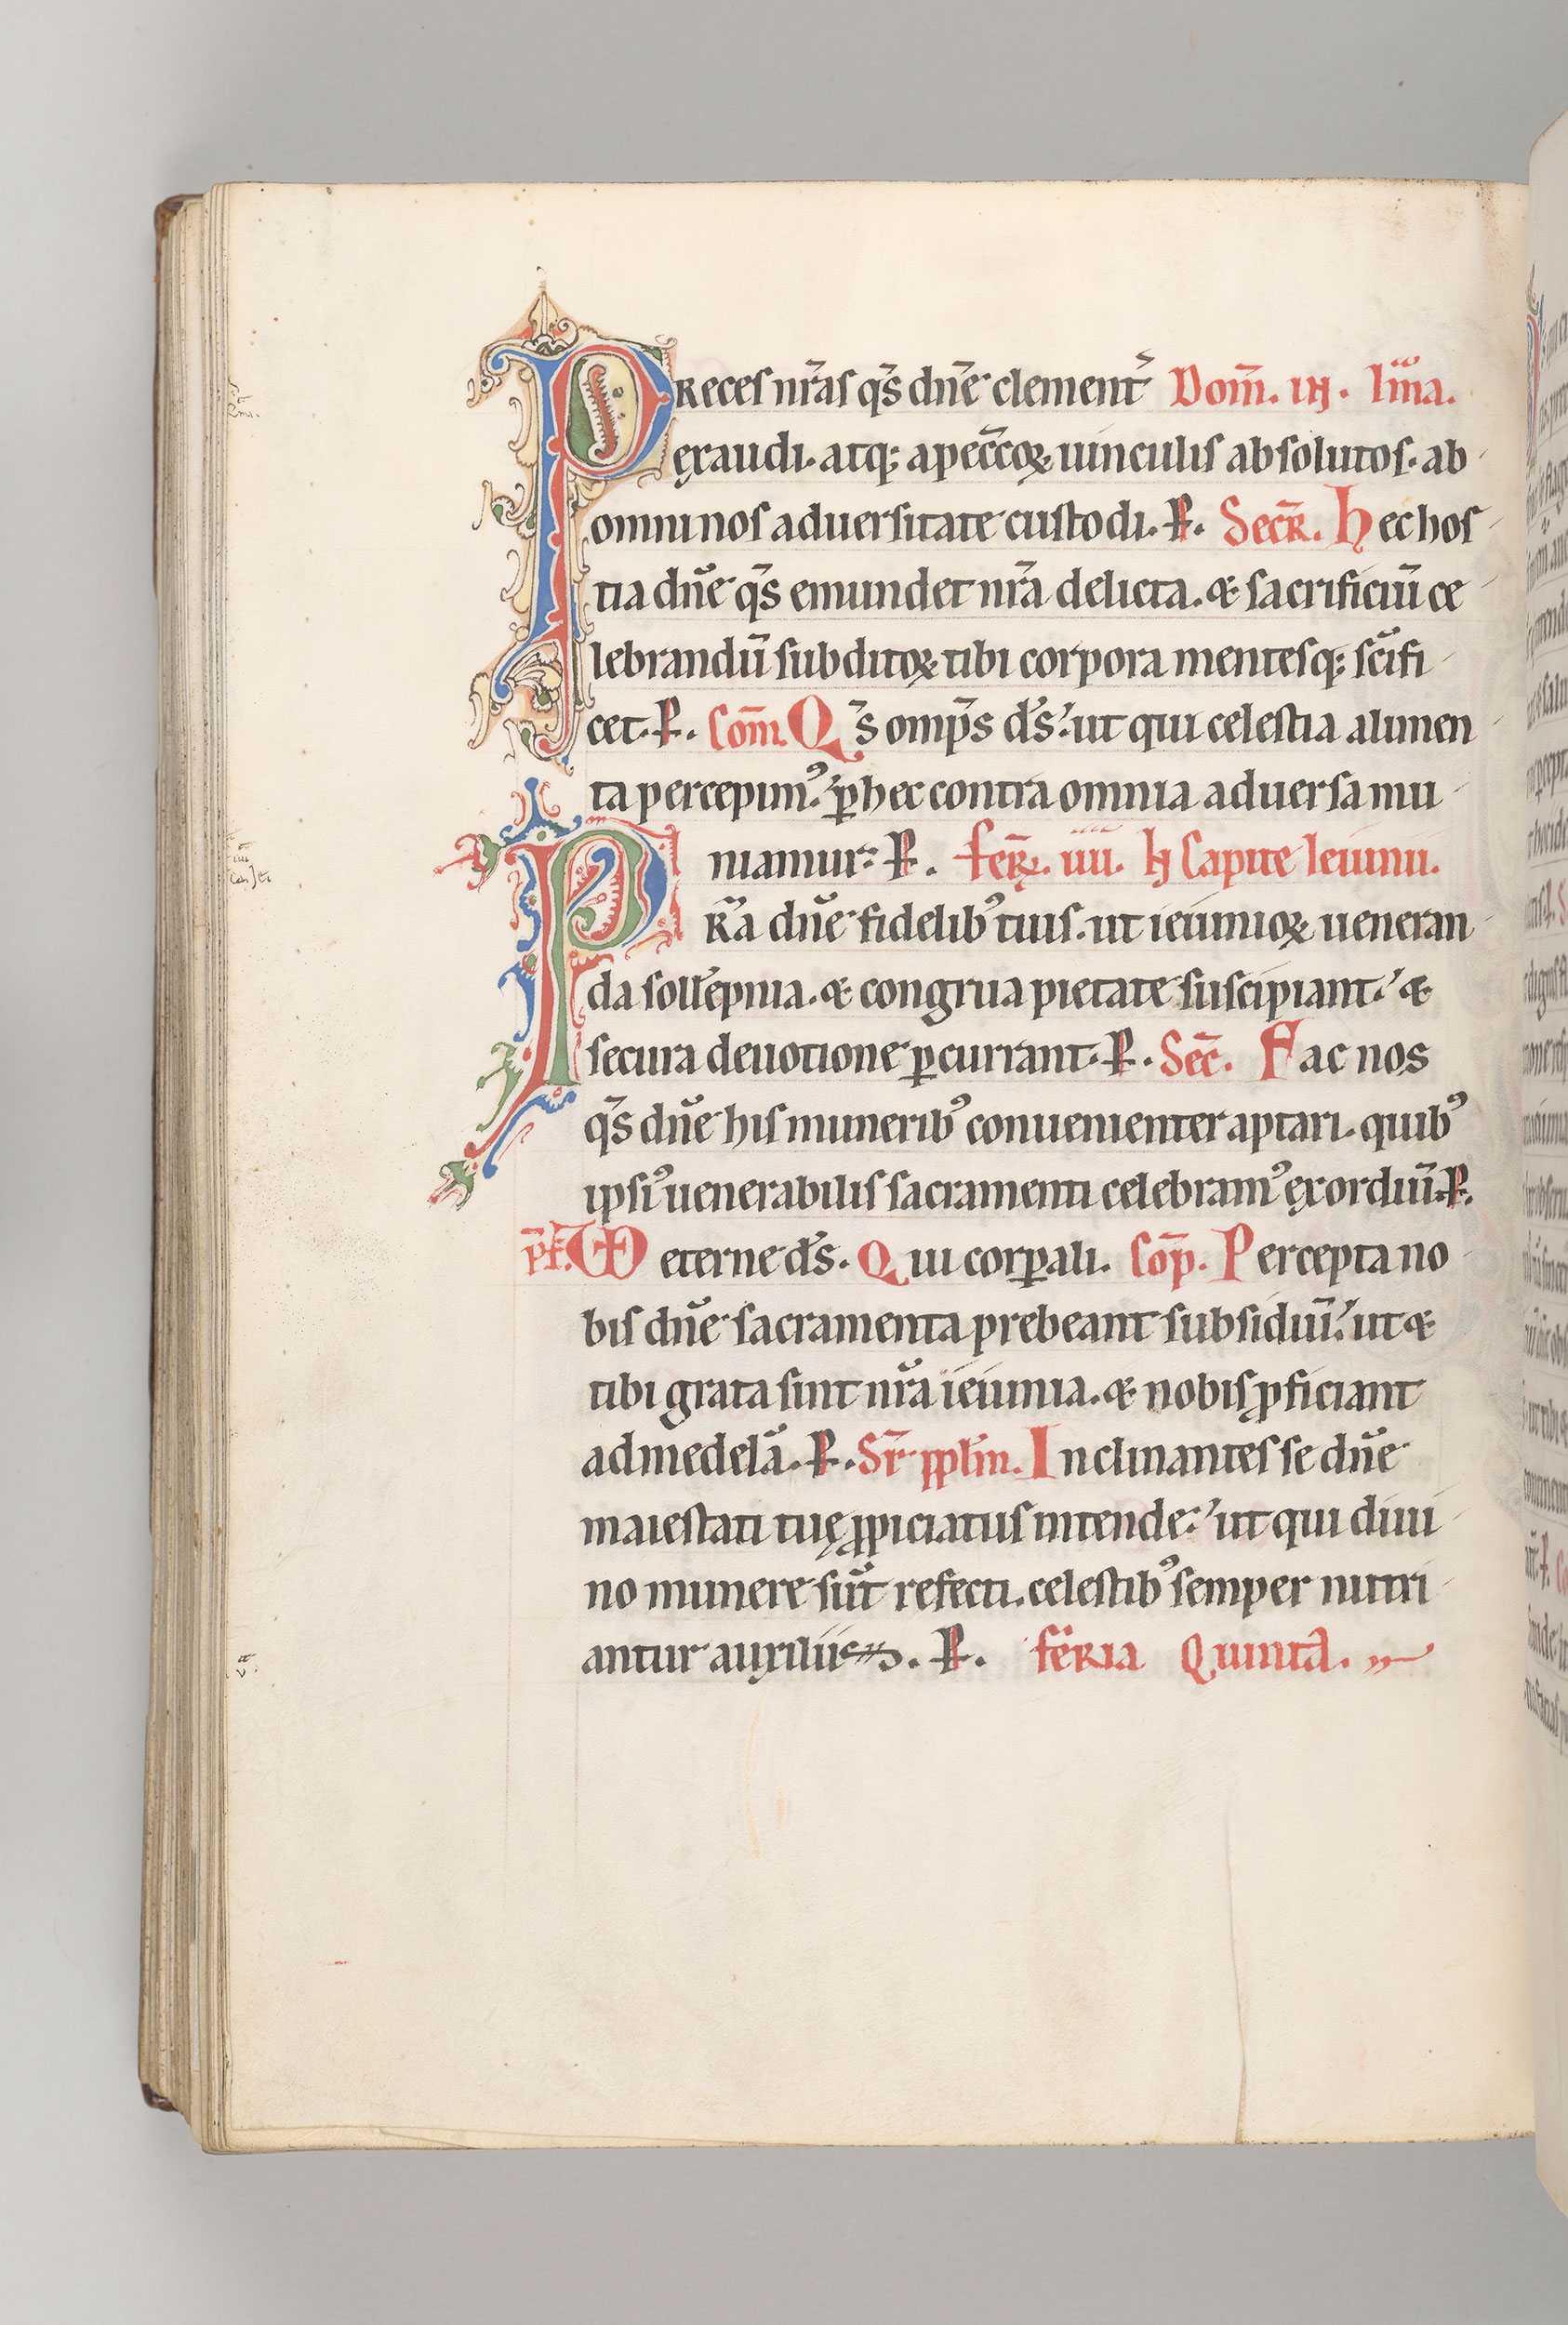 Preces nr̄as q̄s dn̄e clement᷒ Dom̄. in. Lma.
exaudi. atq; a pecc̄oꝝ uinculis absolutos. ab
omni nos aduersitate custodi. P. Secr̄. Hec hos
tia dn̄e q̄s emundet nr̄a delicta. & sacrificiū ce
lebrandū subditoꝝ tibi corpora mentesq; sc̄ifi
cet. P. Com̄. Q̄s omp̄s ds̄. ut qui celestia alimen
ta percepimꝰ. ꝑ hec contra omnia aduersa mu
niamur. P. Fer̄. iiii. in Capite Ieiunii.
Pr̄a dn̄e fidelibꝰ tuis. ut ieiunioꝝ ueneran
da soll̄epnia. & congrua pietate suscipiant. &
secura deuotione ꝑcurrant. P. Sec̄. Fac nos
q̄s dn̄e his muneribꝰ conuenienter aptari. quibꝰ
ipsiꝰ uenerabilis sacramenti celebramꝰ exordiū. P.
p̄f. VD eterne ds̄. Qui corꝑali. Com̄p. Percepta no
bis dn̄e sacramenta prebeant subsidiū. ut &
tibi grata sint nr̄a ieiunia. & nobis ꝓficiant
ad medelā. P. Sr̄ ppl̄m. Inclinantes se dn̄e
maiestati tuę ꝓpiciatus intende. ut qui diui
no munere sūt refecti. celestibꝰ semper nutri
antur auxiliis. P. feria Quinta.